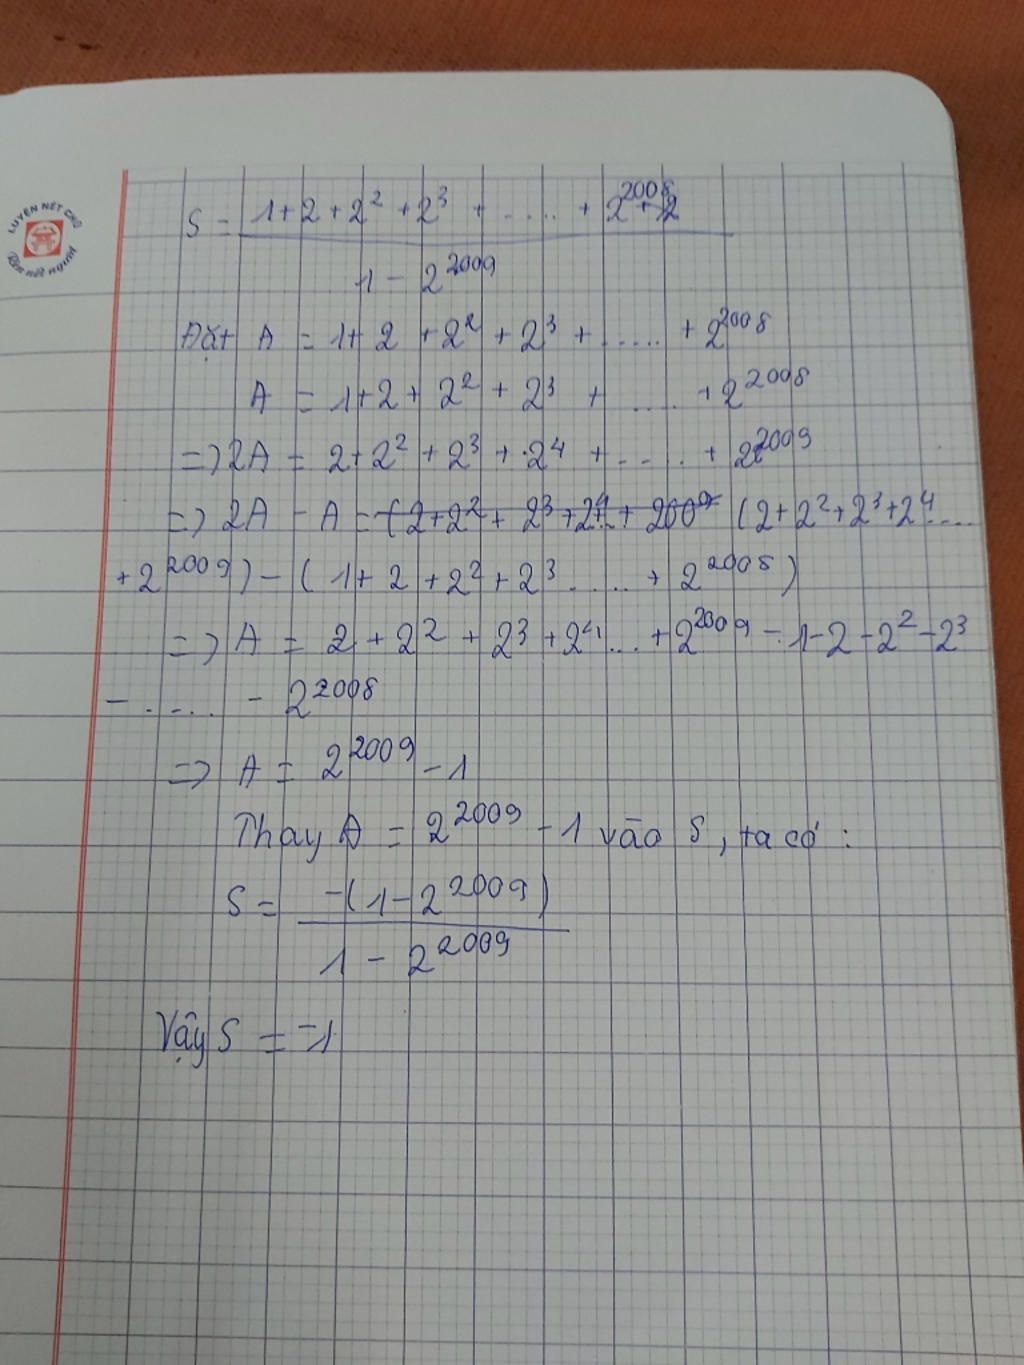 LUYỆN NÉT CHỮ
Rèn nết người
S = 1 + 2 + 2² + 2³ + ..... + 2²⁰⁰⁸
1 - 2²⁰⁰⁹
Đặt A = 1 + 2 + 2² + 2³ + ..... + 2²⁰⁰⁸
A = 1 + 2 + 2² + 2³ + ..... + 2²⁰⁰⁸
=> 2A = 2 + 2² + 2³ + 2⁴ + ..... + 2²⁰⁰⁹
=> 2A - A = (2 + 2² + 2³ + 2⁴ ....
+ 2²⁰⁰⁹) - (1 + 2 + 2² + 2³ ..... + 2²⁰⁰⁸)
=> A = 2 + 2² + 2³ + 2⁴ ... + 2²⁰⁰⁹ - 1 - 2 - 2² - 2³
- ..... - 2²⁰⁰⁸
=> A = 2²⁰⁰⁹ - 1
Thay A = 2²⁰⁰⁹ - 1 vào S, ta có :
S = -(1 - 2²⁰⁰⁹)
1 - 2²⁰⁰⁹
Vậy S = -1